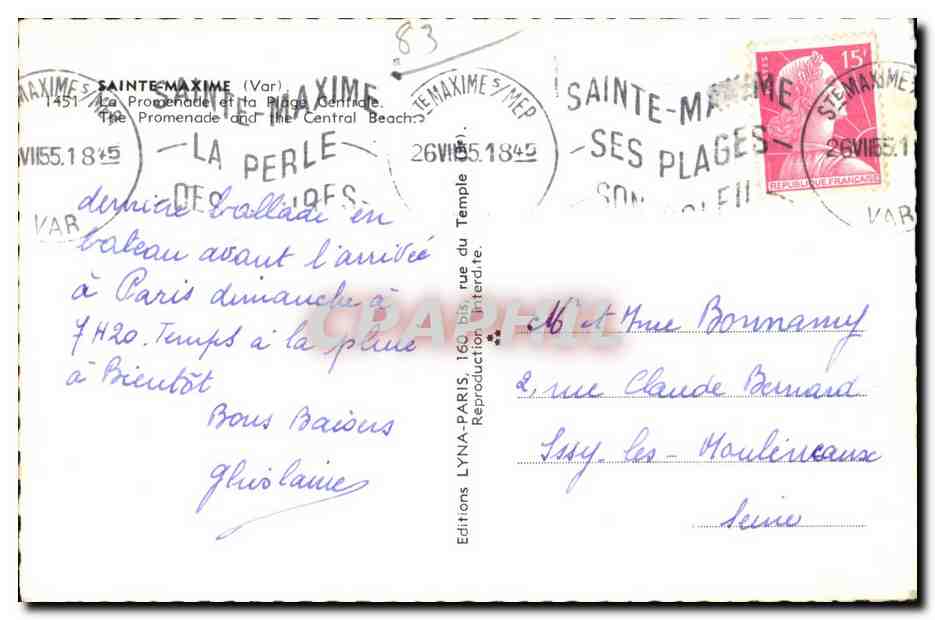 83
SAINTE-MAXIME (Var)
1451 La Promenade et la Plage Centrale.
The Promenade and the Central Beach.
SAINTE-MAXIME
LA PERLE
DES
STE MAXIME S/MER
26 VII 55.1845
VAR
STE MAXIME S/MER
26VII55.1845
SAINTE-MAXIME
SES PLAGES
SON SOLEIL
POSTES
15F
REPUBLIQUE FRANÇAISE
STE MAXIME S
26VII55.1
VAR
dernière ballade en
bateau avant l'arrivée
à Paris dimanche à
7H20. Temps à la pluie
à Bientôt
Bons Baisers
Ghislaine
Editions LYNA-PARIS, 160 bis, rue du Temple (3e).
Reproduction interdite.
CPAPHIL
Mr et Mme Bonnamy
2, rue Claude Bernard
Issy-les-Moulineaux
Seine